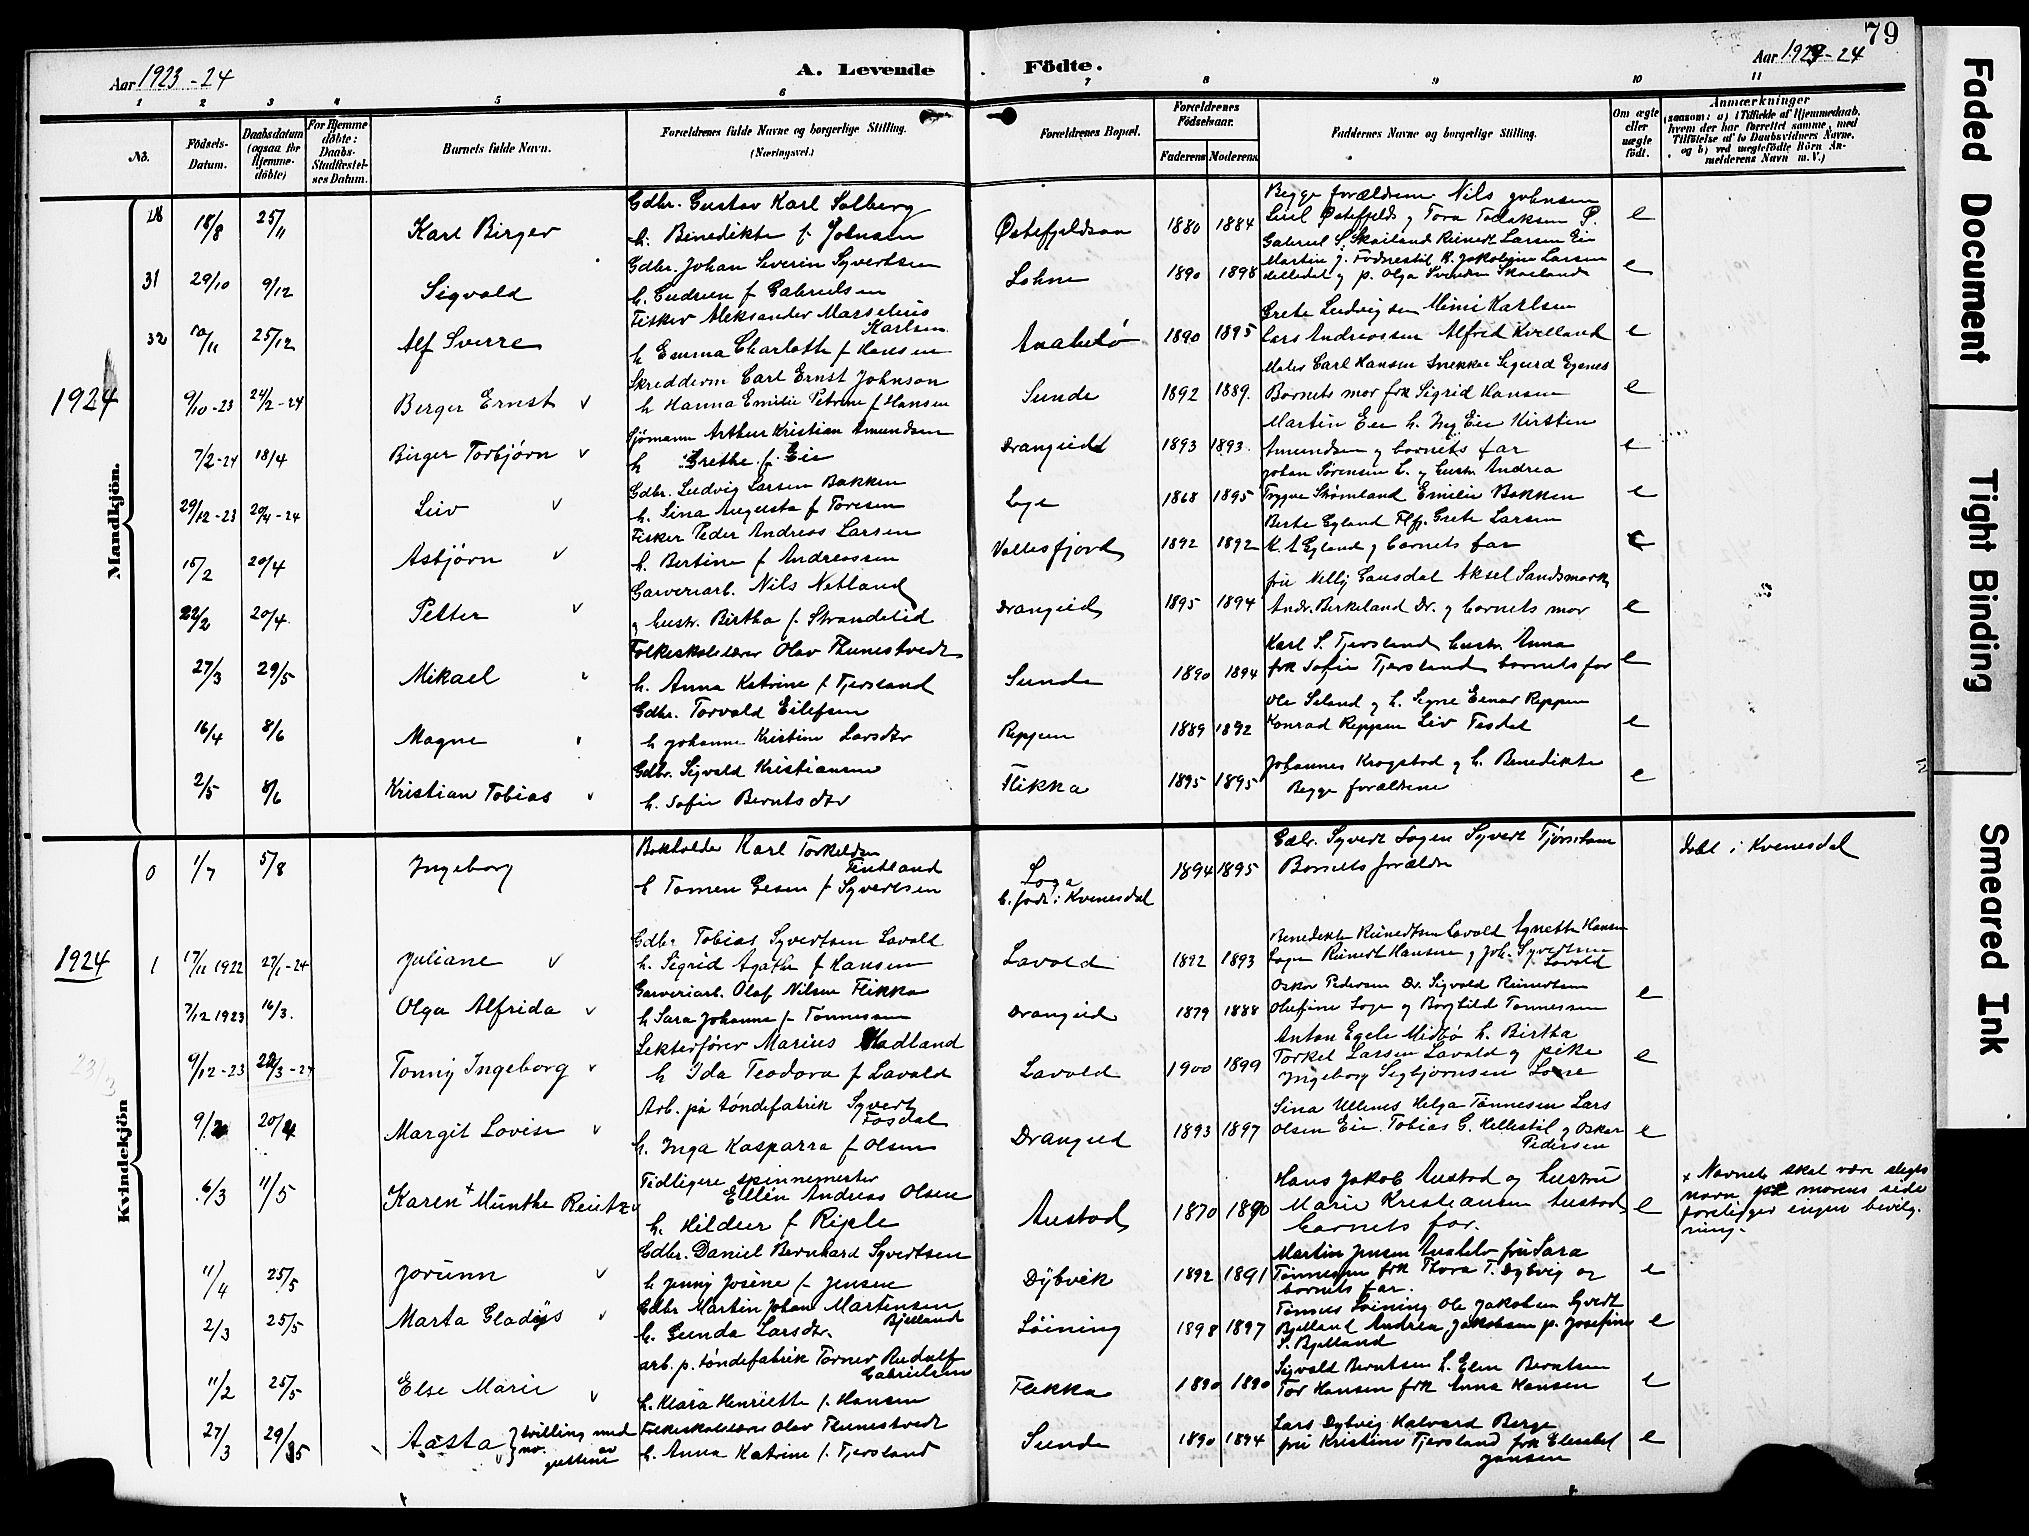 79
Aar 1923-24
A. Levende Födte.
Aar 1924-24
1 2 3 4 5 6 7 8 9 10 11
No.
Födsels-Datum.
Daabsdatum (ogsaa for Hjemme-döbte)
For Hjemme döbte: Daabs-Stadfæstel-ses Datum.
Barnets fulde Navn.
Forældrenes fulde Navne og borgerlige Stilling. (Næringsvei.)
Forældrenes Bopæl.
Forældrenes Födselsaar.
Faderens Moderens
Faddernes Navne og borgerlige Stilling.
Om ægte eller uægte födt.
Anmærkninger
(saasom: a) i Tilfælde af Hjemmedaab, hvem der har forrettet samme, med Tilföielse af to Daabsvidners Navne, og b) ved uægtefödte Börn An-melderens Navn m. V.)
Mandkjön.
18/8 25/11 Karl Birger
Gdbr. Gustav Karl Solberg
h. Benedikte f. Johnsen
1880 1884
Begge forældrene Nils Johnsen
e
31 29/10 9/12 Sigvald
Gdbr. Johan Severin Syvertsen
h. Gudrun f. Gabrielsen
Lohne 1890 1898 e
32 10/11 25/12 Alf Sverre
Fisker Aleksander Marselius Karlsen
h Emma Charlotte f Hansen
Anabelø 1890 1895
Grete Ludvigsen Mimi Karlsen
Lars Andreassen Alfred Kvelland e
1924
9/10-23 24/2-24 Berger Ernst v
Skredderm Carl Ernst Johnson
h Hanna Emilie Petrine f Hansen
Sunde 1892 1889.
Mates Carl Hansen Snekker Sigurd Egenes
Barnets mor frk Sigrid Hansen e
7/2-24 18/4 Birger Torbjørn v
Sjömann Arthur Kristian Amundsen
h Grethe f. Eie
Drangeid 1893 1893.
Martin Eie h. Ing Eie Kirsten
Amundsen og barnets far e
29/12-23 20/4-24 Leiv v
Gdbr. Ludvig Larsen Bakken
h. Sina Augusta f Toresen
Loge 1868 1895
Johan Sørensen L. og hustr. Andrea
Trygve Strømland Emilie Bakken e
15/2 20/4 Asbjørn v
Fisker Peder Andreas Larsen
h. Bertine f Andreassen
Vollesfjord 1892 1892
Berte Egland Flf. Grete Larsen
K. A Egland og barnets far e
22/2 20/4. Petter v
Garveriarb. Nils Netland
og hustr. Birtha f. Strandelid
Drangeid 1895 1894
fru Nelly Gausdal Aksel Sandsmark
Andr. Birkeland Dr. og barnets mor e
27/3 29/5 Mikael
Folkeskolelærer Olav Tunestvedt
h. Anna Katrine f. Tjersland
Sunde 1890 1894
Karl S. Tjersland hustr. Anna
frk Sofie Tjersland barnets far e
16/4 8/6 Magne
Gdbr. Torvald Eilefsen
h Johanne Kristine Larsdtr
Reppen 1889 1892
Ole Seland og h. Signe Einar Reppen
Konrad Reppen Liv Tesdal e
2/5 8/6 Kristian Tobias v
Gdbr. Sigvald Kristiansen
h. Sofie Berntsdtr
Flikka 1895 1895
Johannes Krogstad og h. Benedikte
Begge forældrene e
Kvindekjön
0 1/7 5/8 Ingeborg
Bokholder Karl Torkeldsen Fintland
f Syvertsen
Loga
b. født i Kvenesdal
1894 1895
Gdbr. Syvert Logen Syvert Tjørnhom
Barnets forældre
Døbt i Kvenesdal
1924
1 17/11 1922 27/1-24 Juliane v
Gdbr Tobias Syvertsen Lavold
h. Sigrid Agathe f Hansen
Lavold 1892 1893
Benedikte Reinertsen Lavold Agnethe Hansen
Loge Reinert Hansen og Joh. Syvertsen Lavold
7/12 1923 16/3. Olga Alfrida v
Garveriarb. Olaf Nilsen Flikka
h Sara Johanne f. Tønnessen
Drangeid 1879 1888
Oskar Pedersen Dr. Sigvald Reinertsen
Olefine Loge og Borghild Tønnessen e
9/12-23 22/3-24 Tonny Ingeborg v
Lekterfører Marius Hadland
h Ida Teodora f Lavold
Lavold 1900 1899
Anton Egele Midbø h. Birtha
Torkel Larsen Lavold og pike
Ingeborg Segbjørnsen e
23/3
9/2 20/4 Margit Lovise v
Arb. på tøndefabrik Syvert Fosdal
h. Inga Kasparra f Olsen
Drangeid 1893 1897
Sina Ullenes Helga Tønnesen Lars
Olsen Eie. Tobias G. Hellestøl og Oskar Pedersen e
6/3 11/5 Karen + Munthe Reutz v
Tidligere spinnemester
Ellen Andreas Olsen
h. Hildur f Riple
Austad 1870 1890
Hans Jakob Austad og hustru
Marie Kristiansen Austad
barnets far. e
+ Navnet skal være slegts
navn på morens side
foreligger ingen bevilg-
ning.
11/4 25/5 Jorunn v
Gdbr. Daniel Bernhard Syvertsen
h Jenny Josene f. Jensen
Dybvik 1892 1891
Martin Jensen Anabelø fru Sara
Tønnesen frk Thora T. Dybvig og
barnets far. e
2/3 25/5 Marta Gladys v
Gdbr Martin Johan Martensen Bjelland
h. Gunda Larsdtr.
Løining 1898 1897
Tønnes Løining Ole Jakobsen Syvert
Bjelland Andrea Jakobsen p. Josefine
S. Bjelland e
11/2 25/5 Else Marie v
arb. p. tøndefabrik Torner Rudolf Gabrielsen
h. Klara Henriette f. Hansen
Flikka 1890 1890
Sigvald Berntsen h. Elen Berntsen
Tor Hansen frk Anna Hansen e
27/3 29/5 Aasta v tvilling med no. av guttene
Folkeskolelærer Olav Tunestvedt
h. Anna Katrine f. Tjersland
Sunde 1890 1894
Lars Dybvig Halvard Berge
fru Kristine Tjersland frk Elisabet
Jansen e
Faded Document
Tight Binding
Smeared Ink